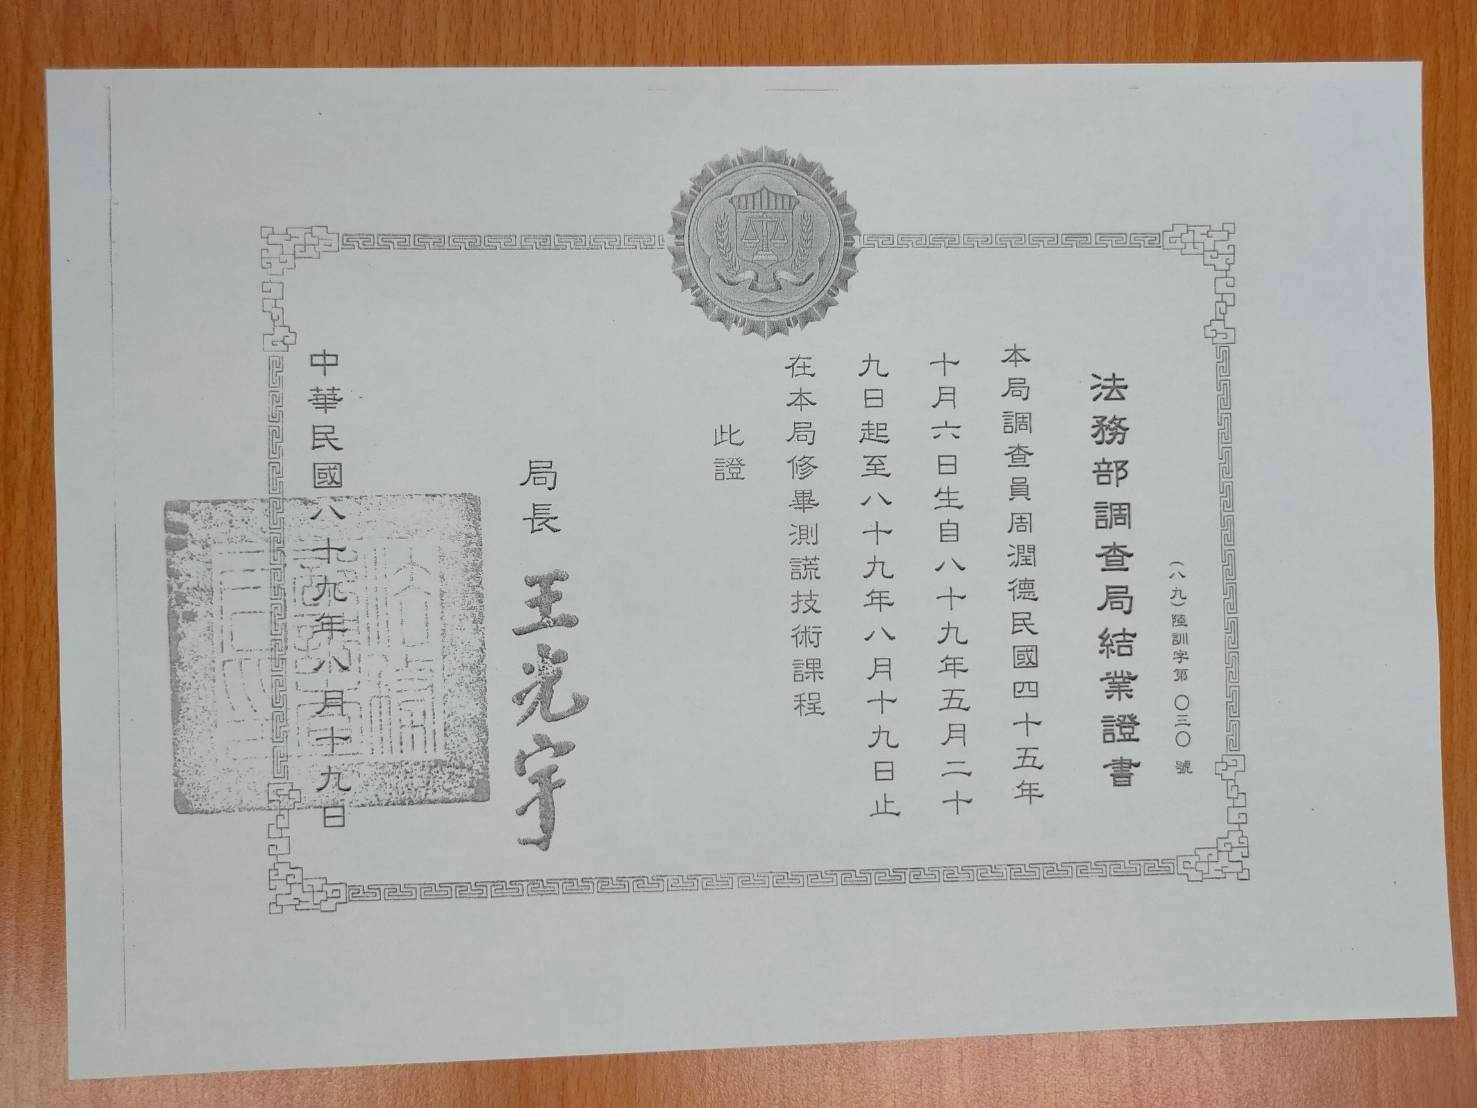 （八九）陸訓字第〇三〇號
法務部調查局結業證書
本局調查員周潤德民國四十五年
十月六日生自八十九年五月二十
九日起至八十九年八月十九日止
在本局修畢測謊技術課程
此證
局長 王光宇
中華民國八十九年八月十九日